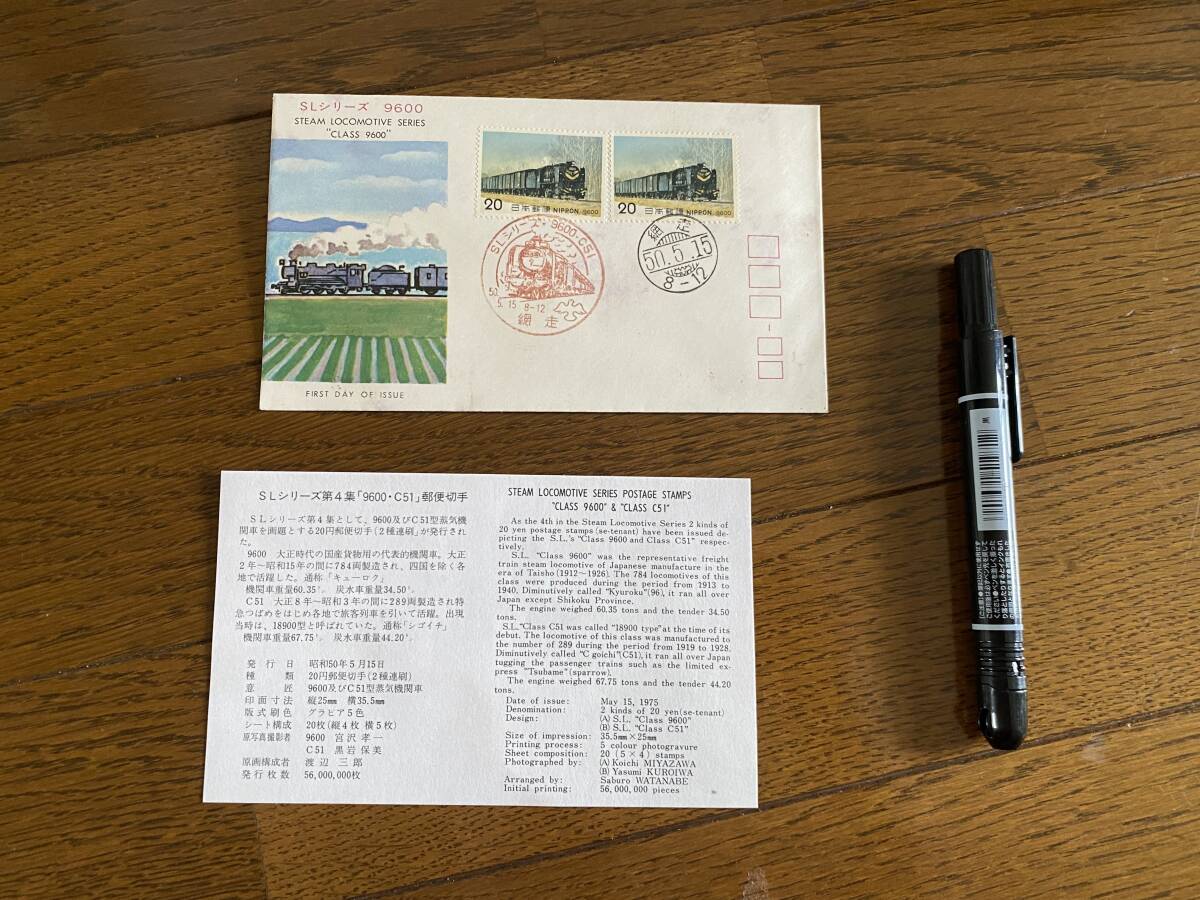 SLシリーズ 9600
STEAM LOCOMOTIVE SERIES
"CLASS 9600"
FIRST DAY OF ISSUE
20 日本郵便 NIPPON 9600
20 日本郵便 NIPPON 9600
SLシリーズ・9600・C51
50.
5.15 8-12
網走
網走
50.5.15
8-12
SLシリーズ第4集「9600・C51」郵便切手
SLシリーズ第4集として、9600及びC51型蒸気機
関車を画題とする20円郵便切手(2種連刷)が発行され
た。
9600 大正時代の国産貨物用の代表的機関車。大正
2年〜昭和15年の間に784両製造され、四国を除く各
地で活躍した。通称「キューロク」
機関車重量60.35㌧ 炭水車重量34.50㌧
C51 大正8年〜昭和3年の間に289両製造され特
急つばめをはじめ各地で旅客列車を引いて活躍。出現
当時は、18900型と呼ばれていた。通称「シゴイチ」
機関車重量67.75㌧ 炭水車重量44.20㌧
発行日 昭和50年5月15日
種類 20円郵便切手(2種連刷)
意匠 9600及びC51型蒸気機関車
印面寸法 縦25㎜ 横35.5㎜
版式刷色 グラビア5色
シート構成 20枚(縦4枚 横5枚)
原写真撮影者 9600 宮沢孝一
C51 黒岩保美
原画構成者 渡辺三郎
発行枚数 56,000,000枚
STEAM LOCOMOTIVE SERIES POSTAGE STAMPS
"CLASS 9600" & "CLASS C51"
As the 4th in the Steam Locomotive Series 2 kinds of
20 yen postage stamps (se-tenant) have been issued de-
picting the S.L.'s "Class 9600 and Class C51" respec-
tively.
S.L. "Class 9600" was the representative freight
train steam locomotive of Japanese manufacture in the
era of Taisho (1912〜1926). The 784 locomotives of this
class were produced during the period from 1913 to
1940. Diminutively called "Kyuroku"(96), it ran all over
Japan except Shikoku Province.
The engine weighed 60.35 tons and the tender 34.50
tons.
S.L."Class C51 was called "18900 type"at the time of its
debut. The locomotive of this class was manufactured to
the number of 289 during the period from 1919 to 1928.
Diminutively called "C goichi"(C51), it ran all over Japan
tugging the passenger trains such as the limited ex-
press "Tsubame"(sparrow).
The engine weighed 67.75 tons and the tender 44.20
tons.
Date of issue: May 15, 1975
Denomination: 2 kinds of 20 yen(se-tenant)
Design: (A) S.L. "Class 9600"
(B) S.L. "Class C51"
Size of impression: 35.5㎜×25㎜
Printing process: 5 colour photogravure
Sheet composition: 20 (5×4) stamps
Photographed by: (A) Koichi MIYAZAWA
(B) Yasumi KUROIWA
Arranged by: Saburo WATANABE
Initial printing: 56,000,000 pieces
黒